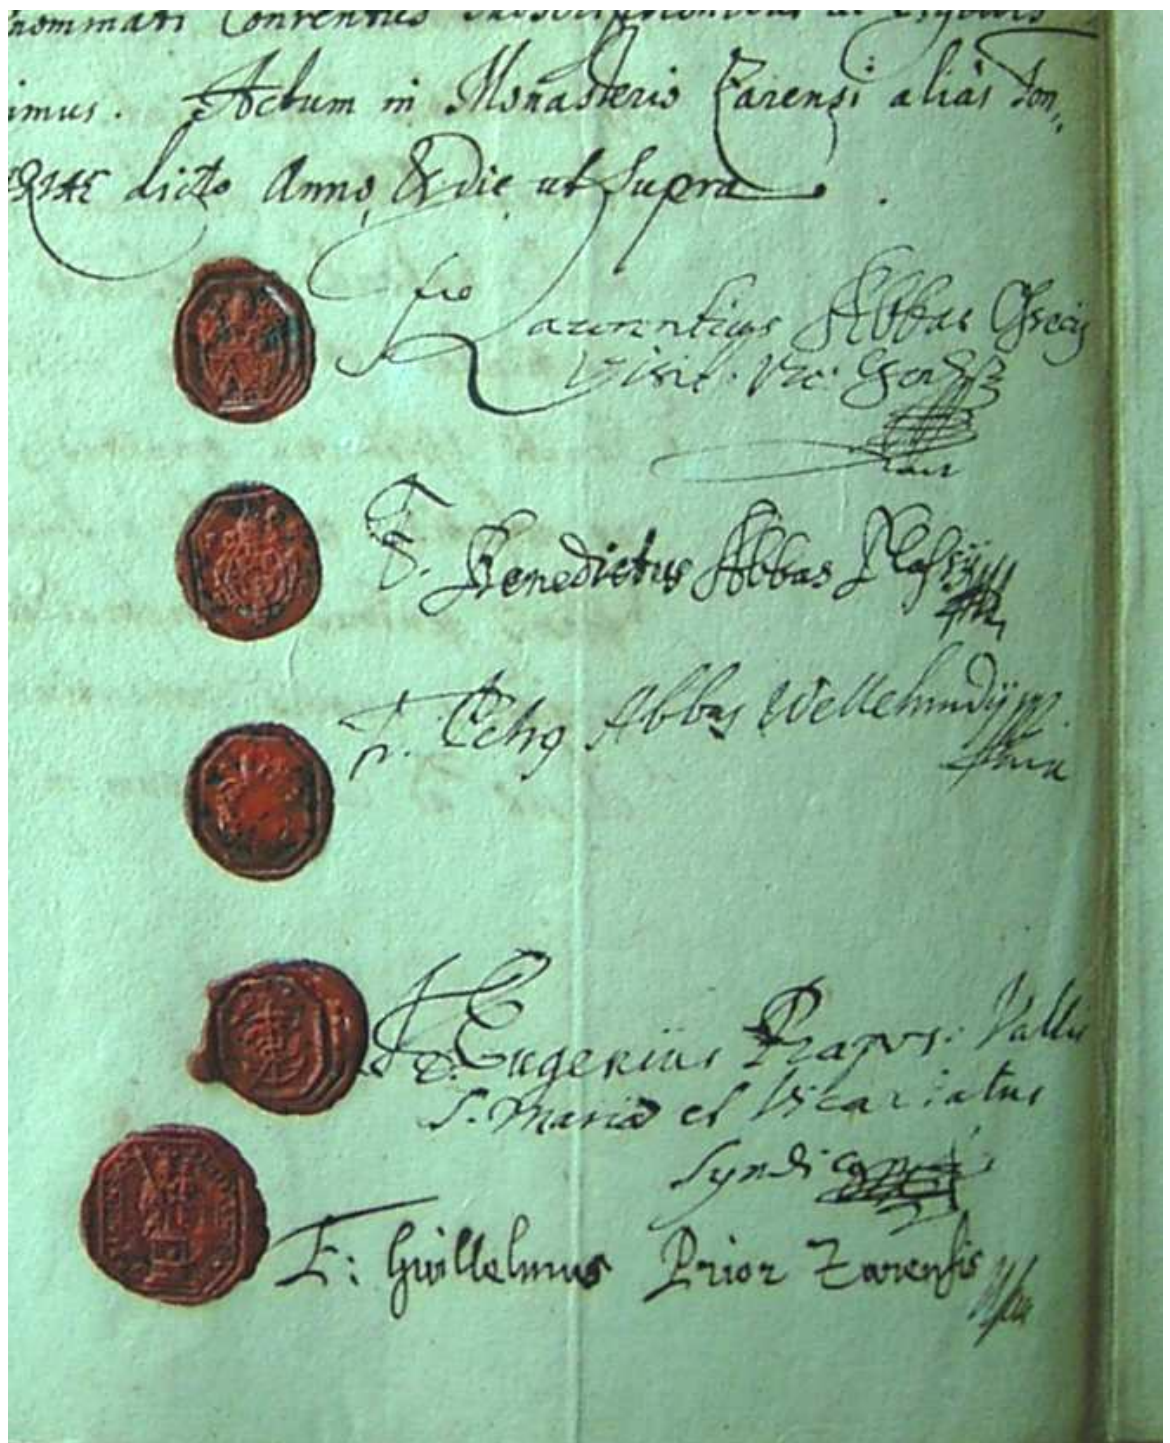 nommati Conventus subscriptionibus ac sigillis
imus. Actum in Monasterio Zarensi aliàs Fon,,
dicto Anno, & die, ut supra.
Laurentius Abbas Ossecij
Visit. Vic: Gen
F. Benedictus Abbas Plassij
F. Abbas Wellehradij
F. Eugenius Præpos: Vallis
S. Mariæ et Vicariatus
Syndicus
F: Guillelmus Prior Zarensis